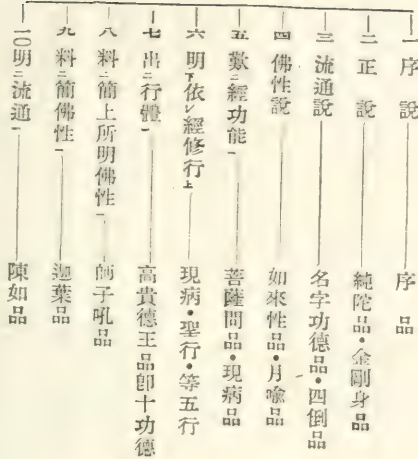 一 序說 序品
二 正說 純陀品・金剛身品
三 流通說 名字功德品・四倒品
四 佛性說 如來性品・月喩品
五 歎二經功能一 菩薩問品・現病品
六 明下依レ經修行上 現病・聖行・等五行
七 出二行體一 高貴德王品卽十功德
八 料二簡上所明佛性一 師子吼品
九 料二簡佛性一 迦葉品
一〇 明二流通一 陳如品